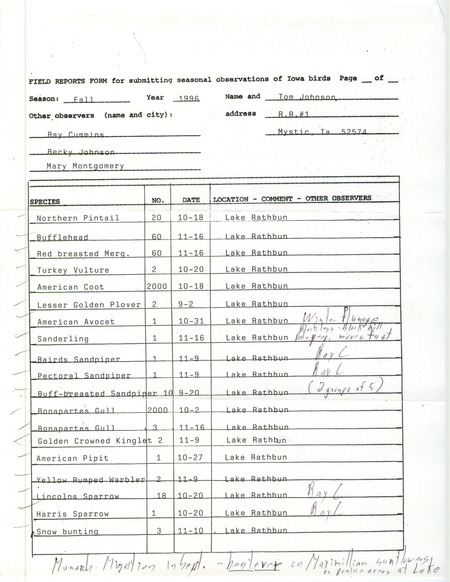 FIELD REPORTS FORM for submitting seasonal observations of Iowa birds Page __ of __
Season: Fall Year 1996 Name and Tom Johnson
Other observers (name and city): address R.R.#1
Ray Cummins Mystic, Ia. 52574
Becky Johnson
Mary Montgomery
SPECIES NO. DATE LOCATION - COMMENT - OTHER OBSERVERS
Northern Pintail 20 10-18 Lake Rathbun
Bufflehead 60 11-16 Lake Rathbun
Red breasted Merg. 60 11-16 Lake Rathbun
Turkey Vulture 2 10-20 Lake Rathbun
American Coot 2000 10-18 Lake Rathbun
Lesser Golden Plover 2 9-2 Lake Rathbun
American Avocet 1 10-31 Lake Rathbun Winter Plumage
Sanderling 1 11-16 Lake Rathbun
Bairds Sandpiper 1 11-9 Lake Rathbun Ray C
Pectoral Sandpiper 1 11-9 Lake Rathbun Ray C
Buff-breasted Sandpiper 10 9-20 Lake Rathbun (2 groups of 5)
Bonapartes Gull 2000 10-2 Lake Rathbun
Bonapartes Gull 3 11-16 Lake Rathbun
Golden Crowned Kinglet 2 11-9 Lake Rathbun
American Pipit 1 10-27 Lake Rathbun
Yellow Rumped Warbler 2 11-9 Lake Rathbun
Lincolns Sparrow 18 10-20 Lake Rathbun Ray C
Harris Sparrow 1 10-20 Lake Rathbun Ray C
Snow bunting 3 11-10 Lake Rathbun
Monarch Migration in Sept. - on Maximillian sunflowers
on prairie area at Lake